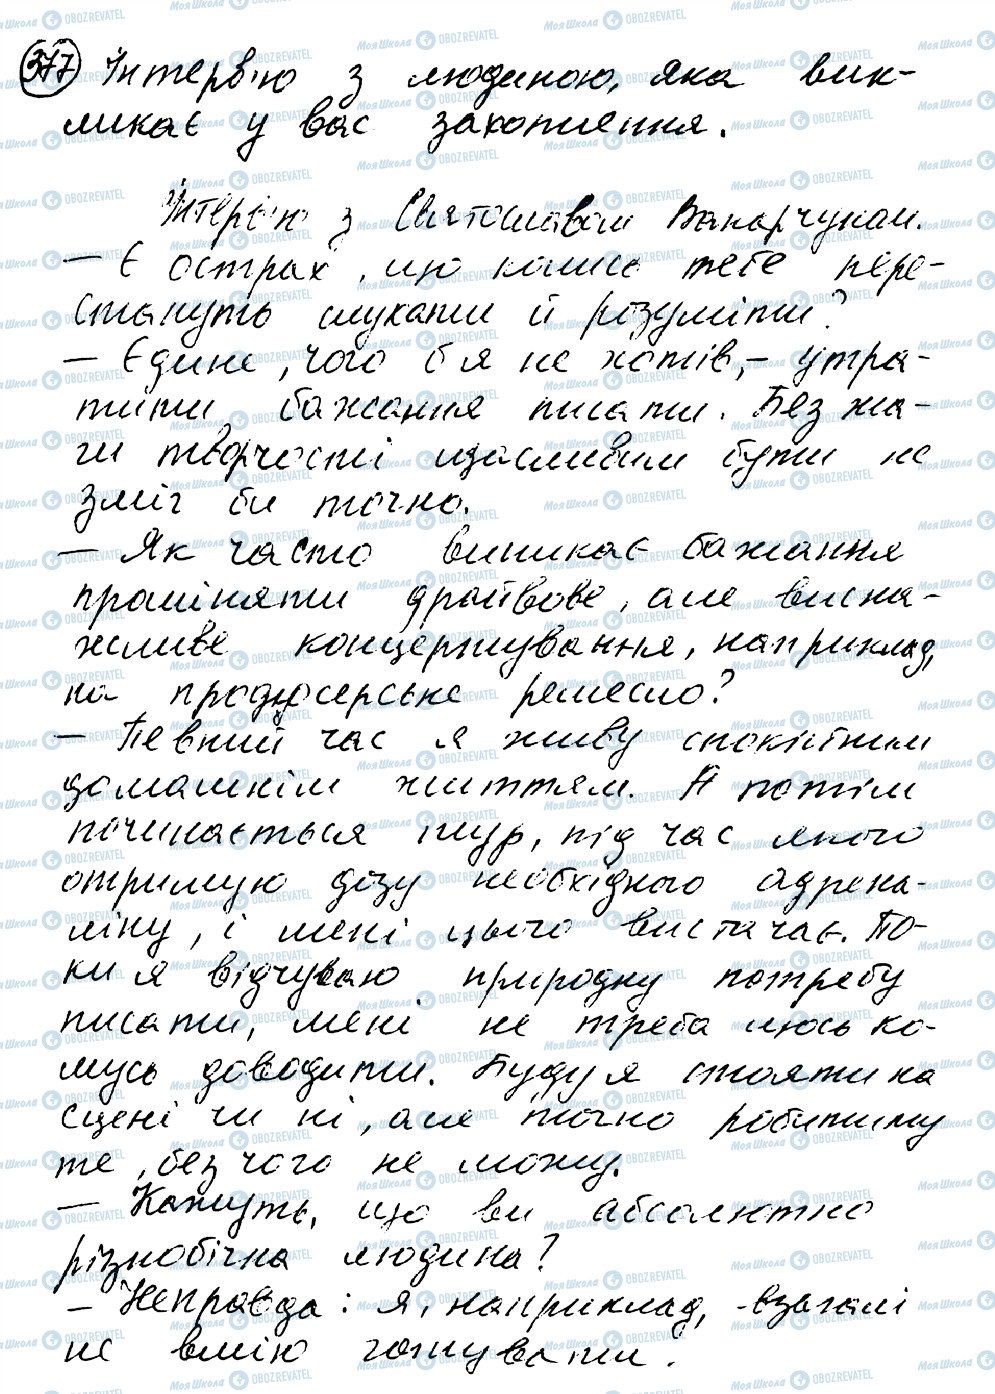 377 Інтерв'ю з людиною, яка вик-
ликає у вас захоплення.
Інтерв'ю з Святославом Вакарчуком.
— Є острах, що колись тебе пере-
стануть слухати й розуміти?
— Єдине, чого б я не хотів, — утра-
тити бажання писати. Без жа-
ги творчості щасливим бути не
зміг би точно.
— Як часто виникає бажання
проміняти драйвове, але висна-
жливе концертування, наприклад,
на продюсерське ремесло?
— Певний час я живу спокійним
домашнім життям. А потім
починається тур, під час якого
отримую дозу необхідного адрена-
ліну, і мені цього вистачає. По-
ки я відчуваю природну потребу
писати, мені не треба щось ко-
мусь доводити. Буду я стояти на
сцені чи ні, але точно робитиму
те, без чого не можу.
— Кажуть, що ви абсолютно
різнобічна людина?
— Неправда: я, наприклад, взагалі
не вмію готувати.